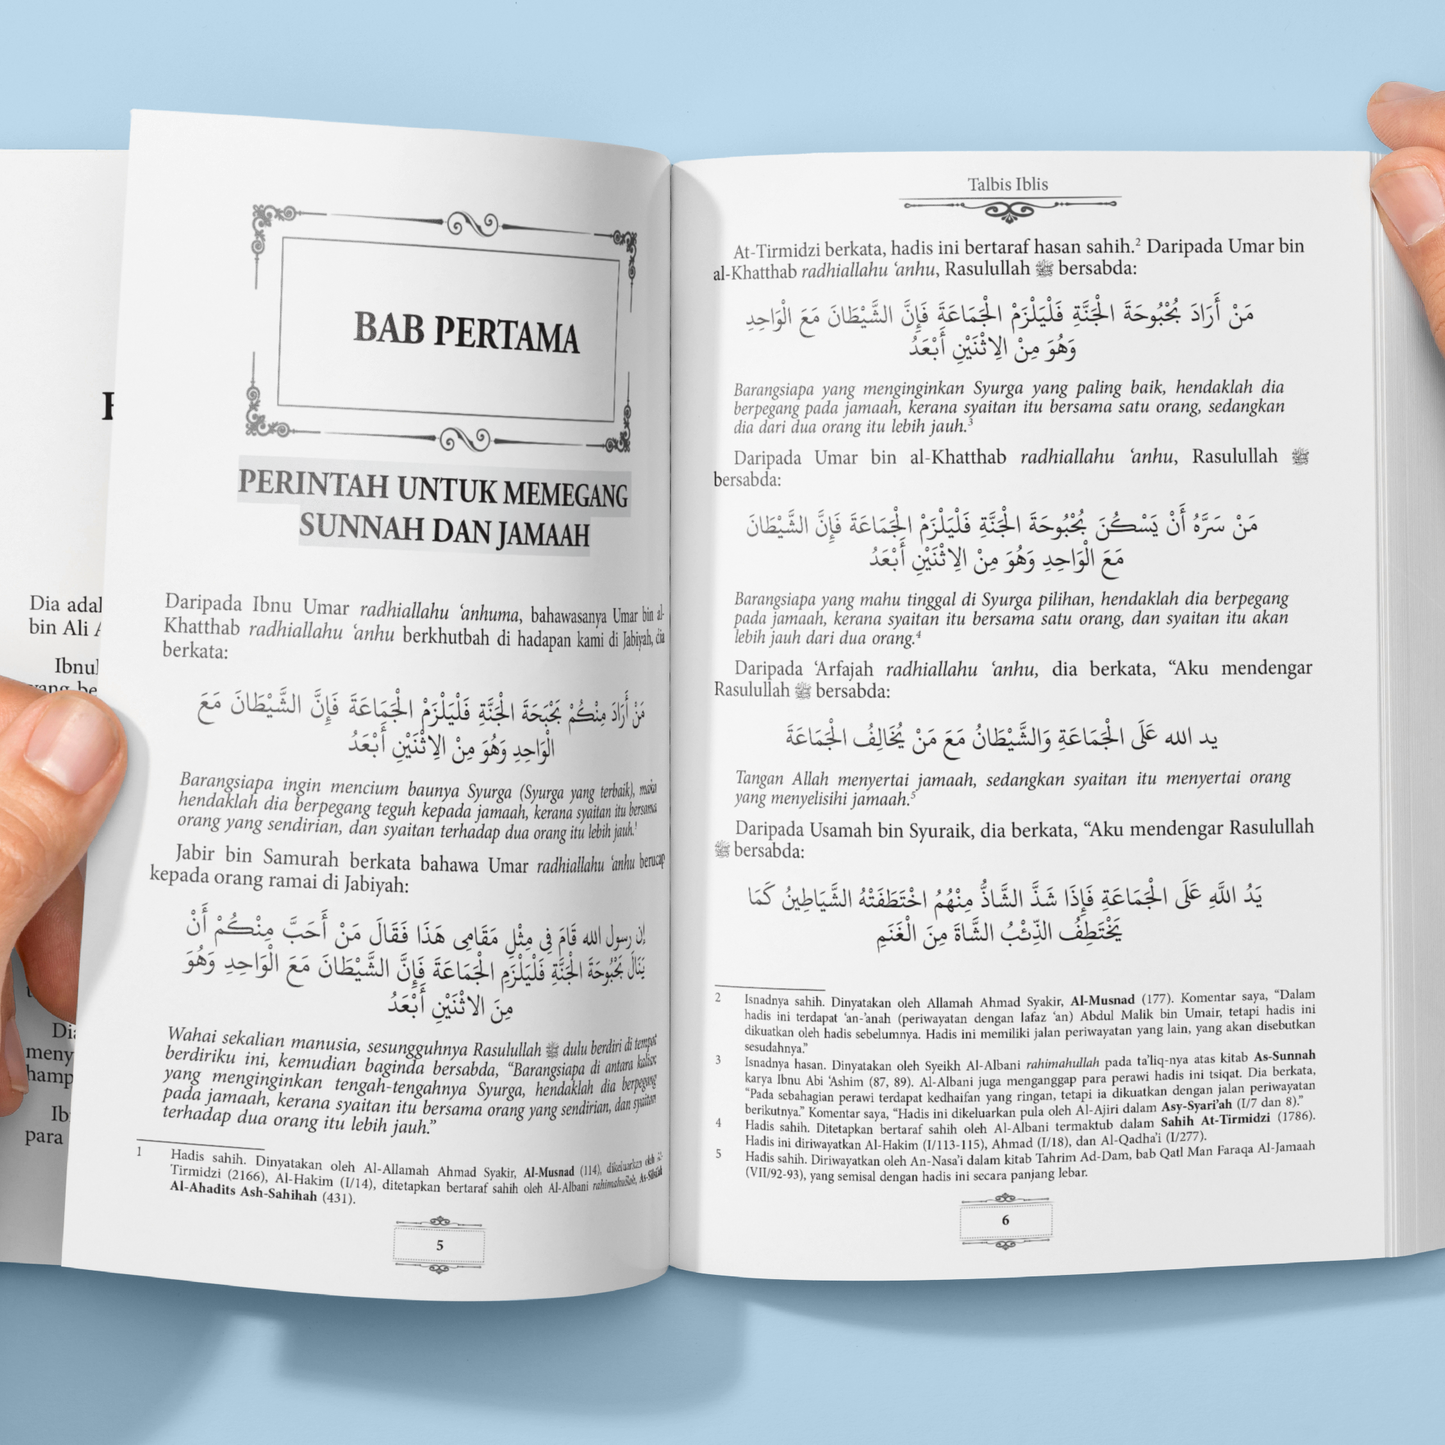 Dia adal
bin Ali A
Ibnul
yang be
Dia
meny
hamp
Ib
para
BAB PERTAMA
PERINTAH UNTUK MEMEGANG
SUNNAH DAN JAMAAH
Daripada Ibnu Umar radhiallahu ‘anhuma, bahawasanya Umar bin al-
Khatthab radhiallahu ‘anhu berkhutbah di hadapan kami di Jabiyah, dia
berkata:
مَنْ أَرَادَ مِنْكُمْ بَحْبَحَةَ الْجَنَّةِ فَلْيَلْزَمْ الْجَمَاعَةَ فَإِنَّ الشَّيْطَانَ مَعَ
الْوَاحِدِ وَهُوَ مِنْ الِاثْنَيْنِ أَبْعَدُ
Barangsiapa ingin mencium baunya Syurga (Syurga yang terbaik), maka
hendaklah dia berpegang teguh kepada jamaah, kerana syaitan itu bersama
orang yang sendirian, dan syaitan terhadap dua orang itu lebih jauh.¹
Jabir bin Samurah berkata bahawa Umar radhiallahu ‘anhu berucap
kepada orang ramai di Jabiyah:
إن رسول الله قَامَ فِي مِثْلِ مَقَامِى هَذَا فَقَالَ مَنْ أَحَبَّ مِنْكُمْ أَنْ
يَنَالَ بُحْبُوحَةَ الْجَنَّةِ فَلْيَلْزَمِ الْجَمَاعَةَ فَإِنَّ الشَّيْطَانَ مَعَ الْوَاحِدِ وَهُوَ
مِنَ الاثْنَيْنِ أَبْعَدُ
Wahai sekalian manusia, sesungguhnya Rasulullah ﷺ dulu berdiri di tempat
berdiriku ini, kemudian baginda bersabda, “Barangsiapa di antara kalian
yang menginginkan tengah-tengahnya Syurga, hendaklah dia berpegang
pada jamaah, kerana syaitan itu bersama orang yang sendirian, dan syaitan
terhadap dua orang itu lebih jauh.”
1 Hadis sahih. Dinyatakan oleh Al-Allamah Ahmad Syakir, Al-Musnad (114), dikeluarkan oleh At-
Tirmidzi (2166), Al-Hakim (I/14), ditetapkan bertaraf sahih oleh Al-Albani rahimahullah, As-Silsilah
Al-Ahadits Ash-Sahihah (431).
5
Talbis Iblis
At-Tirmidzi berkata, hadis ini bertaraf hasan sahih.² Daripada Umar bin
al-Khatthab radhiallahu ‘anhu, Rasulullah ﷺ bersabda:
مَنْ أَرَادَ بُحْبُوحَةَ الْجَنَّةِ فَلْيَلْزَمْ الْجَمَاعَةَ فَإِنَّ الشَّيْطَانَ مَعَ الْوَاحِدِ
وَهُوَ مِنْ الِاثْنَيْنِ أَبْعَدُ
Barangsiapa yang menginginkan Syurga yang paling baik, hendaklah dia
berpegang pada jamaah, kerana syaitan itu bersama satu orang, sedangkan
dia dari dua orang itu lebih jauh.³
Daripada Umar bin al-Khatthab radhiallahu ‘anhu, Rasulullah ﷺ
bersabda:
مَنْ سَرَّهُ أَنْ يَسْكُنَ بُحْبُوحَةَ الْجَنَّةِ فَلْيَلْزَمْ الْجَمَاعَةَ فَإِنَّ الشَّيْطَانَ
مَعَ الْوَاحِدِ وَهُوَ مِنْ الِاثْنَيْنِ أَبْعَدُ
Barangsiapa yang mahu tinggal di Syurga pilihan, hendaklah dia berpegang
pada jamaah, kerana syaitan itu bersama satu orang, dan syaitan itu akan
lebih jauh dari dua orang.⁴
Daripada ‘Arfajah radhiallahu ‘anhu, dia berkata, “Aku mendengar
Rasulullah ﷺ bersabda:
يد الله عَلَى الْجَمَاعَةِ وَالشَّيْطَانُ مَعَ مَنْ يُخَالِفُ الْجَمَاعَةَ
Tangan Allah menyertai jamaah, sedangkan syaitan itu menyertai orang
yang menyelisihi jamaah.⁵
Daripada Usamah bin Syuraik, dia berkata, “Aku mendengar Rasulullah
ﷺ bersabda:
يَدُ اللَّهِ عَلَى الْجَمَاعَةِ فَإِذَا شَذَّ الشَّاذُّ مِنْهُمُ اخْتَطَفَتْهُ الشَّيَاطِينُ كَمَا
يَخْتَطِفُ الذِّئْبُ الشَّاةَ مِنَ الْغَنَمِ
2 Isnadnya sahih. Dinyatakan oleh Allamah Ahmad Syakir, Al-Musnad (177). Komentar saya, “Dalam
hadis ini terdapat ‘an-‘anah (periwayatan dengan lafaz ‘an) Abdul Malik bin Umair, tetapi hadis ini
dikuatkan oleh hadis sebelumnya. Hadis ini memiliki jalan periwayatan yang lain, yang akan disebutkan
sesudahnya.”
3 Isnadnya hasan. Dinyatakan oleh Syeikh Al-Albani rahimahullah pada ta’liq-nya atas kitab As-Sunnah
karya Ibnu Abi ‘Ashim (87, 89). Al-Albani juga menganggap para perawi hadis ini tsiqat. Dia berkata,
“Pada sebahagian perawi terdapat kedhaifan yang ringan, tetapi ia dikuatkan dengan jalan periwayatan
berikutnya.” Komentar saya, “Hadis ini dikeluarkan pula oleh Al-Ajiri dalam Asy-Syari’ah (I/7 dan 8).”
4 Hadis sahih. Ditetapkan bertaraf sahih oleh Al-Albani termaktub dalam Sahih At-Tirmidzi (1786).
Hadis ini diriwayatkan Al-Hakim (I/113-115), Ahmad (I/18), dan Al-Qadha’i (I/277).
5 Hadis sahih. Diriwayatkan oleh An-Nasa’i dalam kitab Tahrim Ad-Dam, bab Qatl Man Faraqa Al-Jamaah
(VII/92-93), yang semisal dengan hadis ini secara panjang lebar.
6